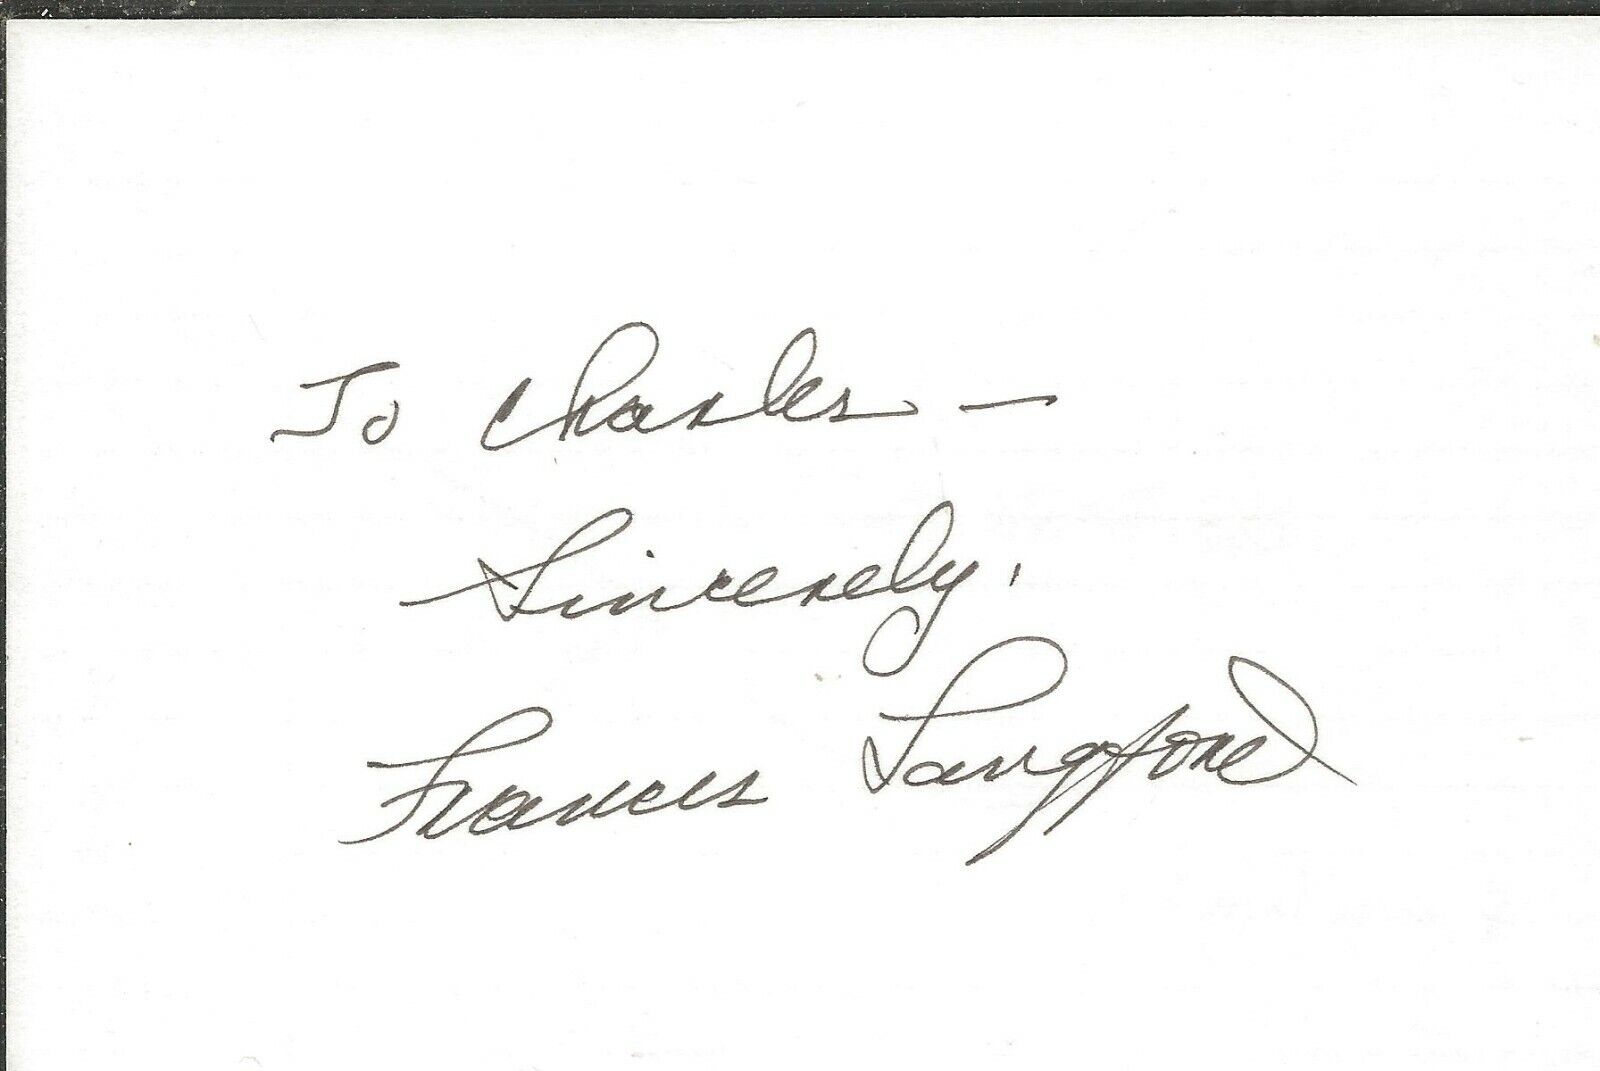 To Charles —
Sincerely,
Frances Langford